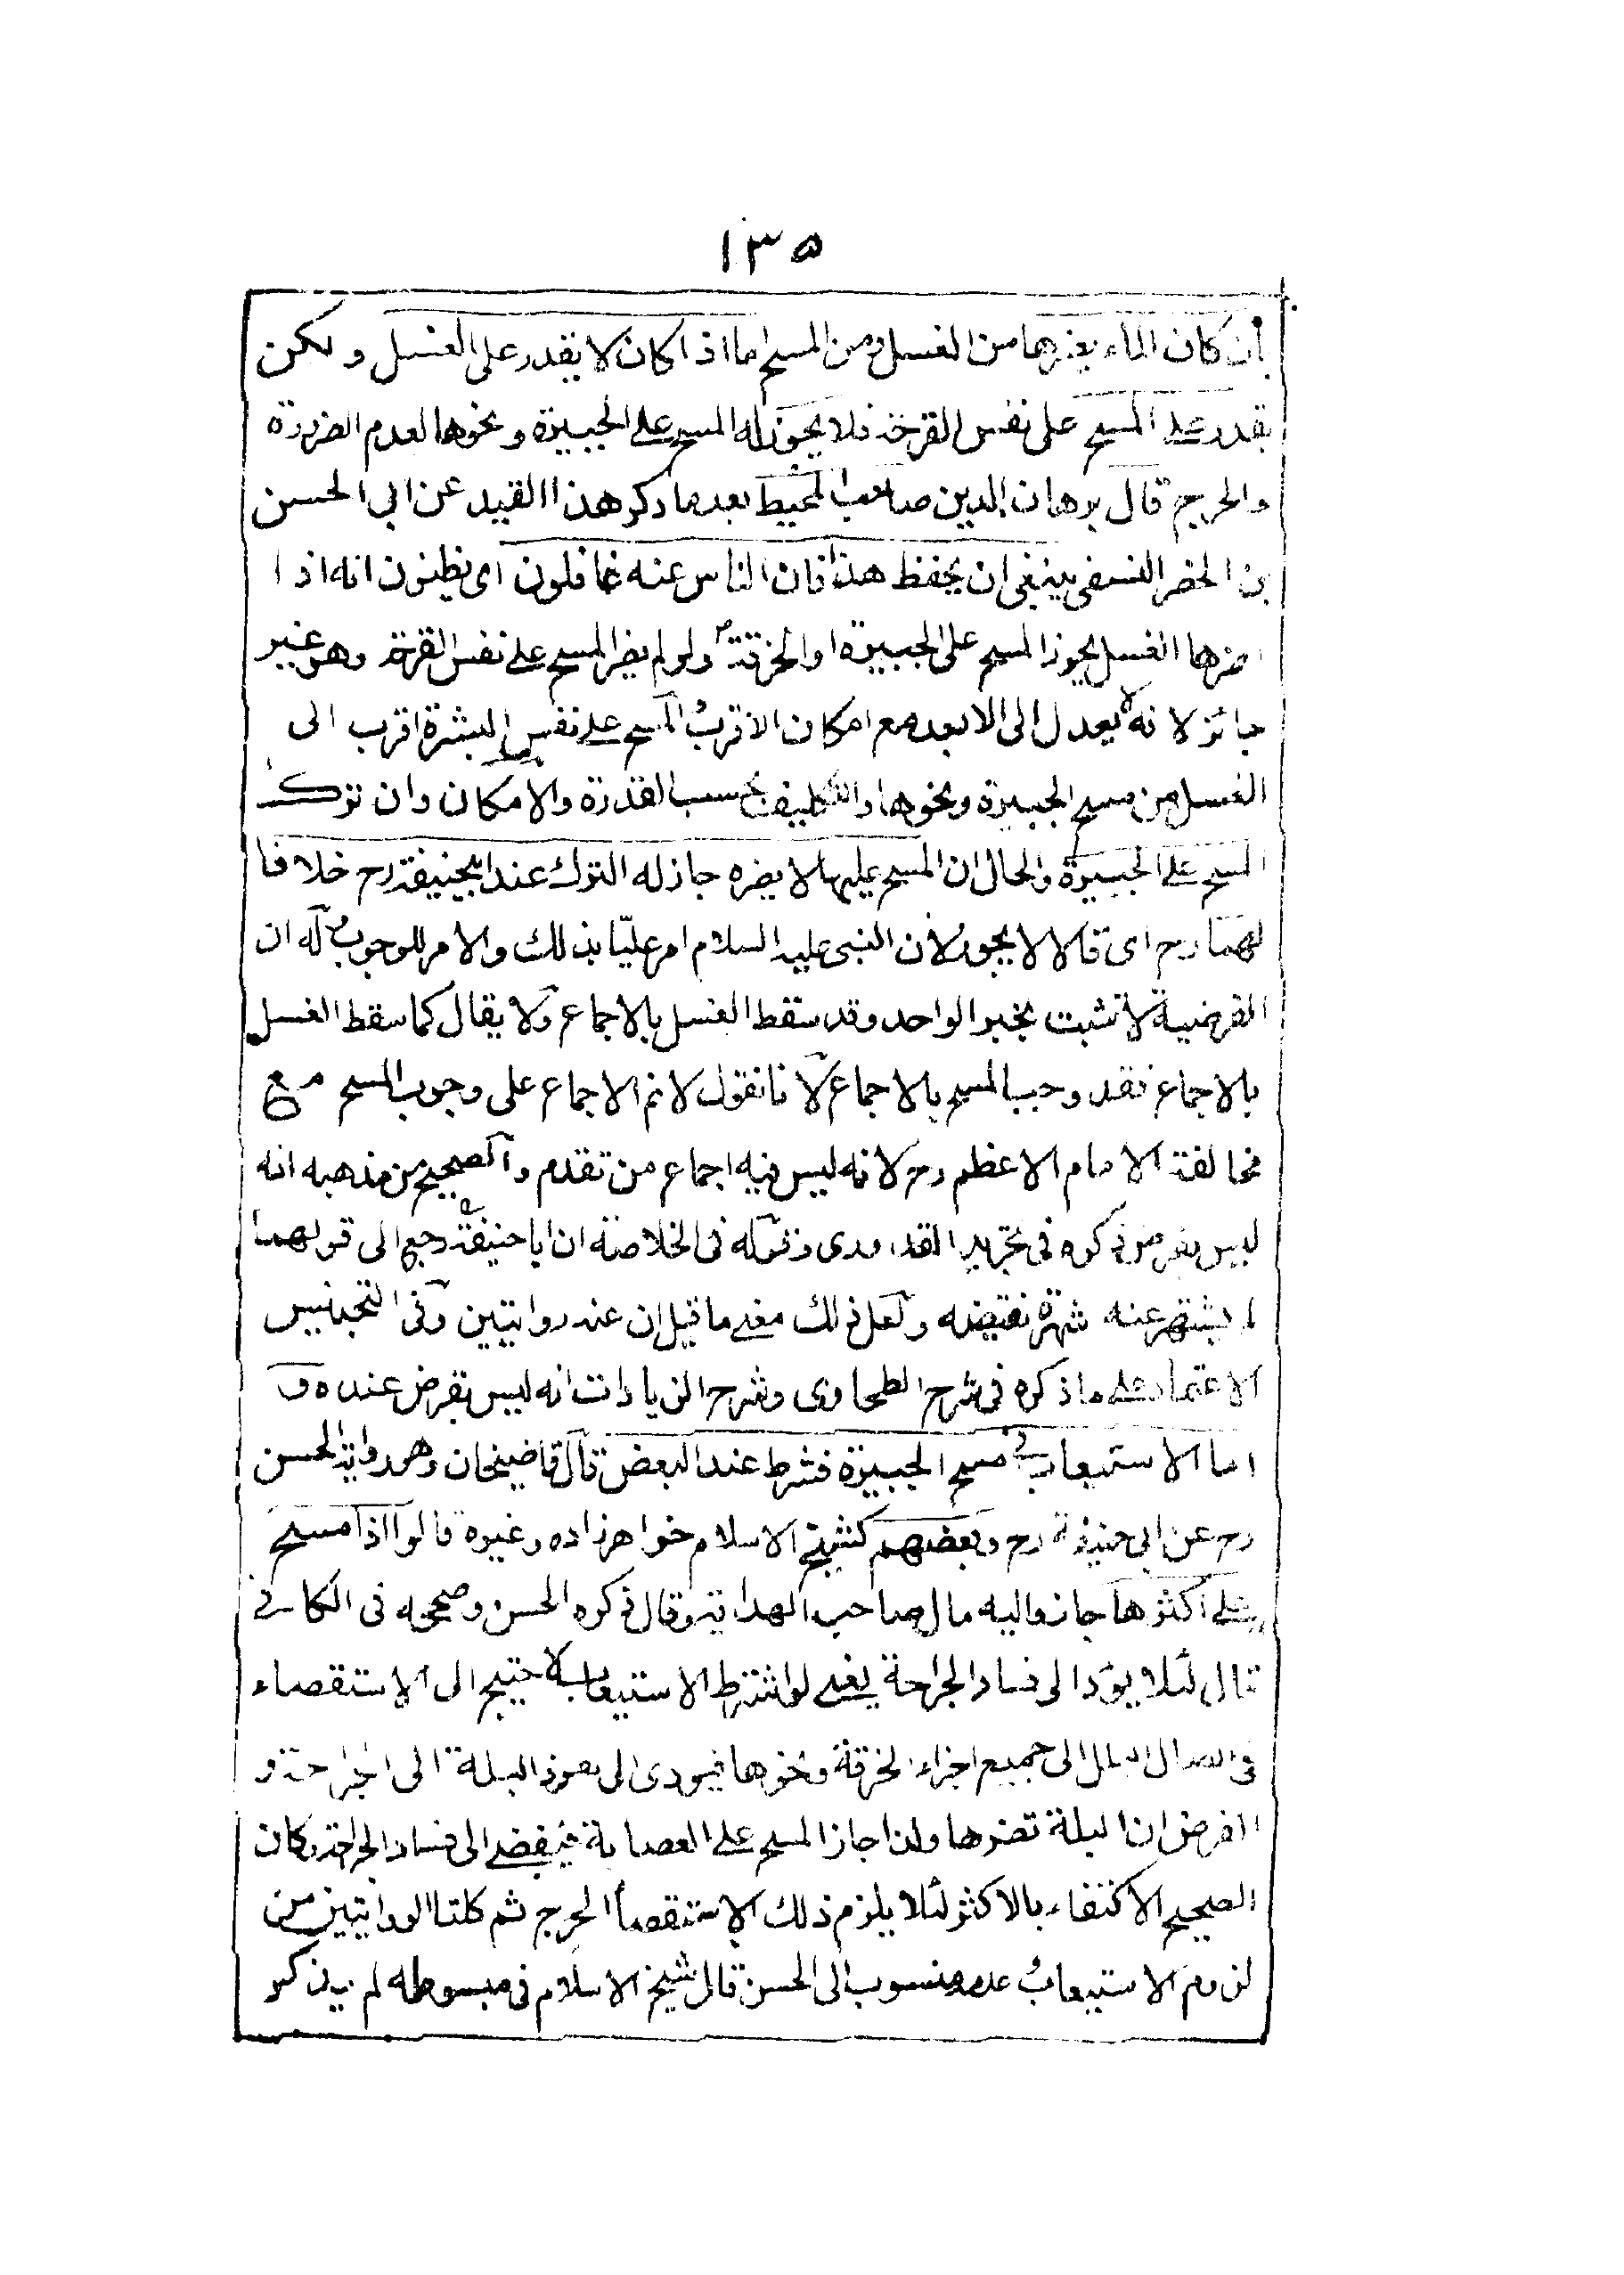 ١٣٥
بان كان الماء يضرها من الغسل ومن المسح اما اذا كان لا يقدر على الغسل ولكن
يقدر على المسح على نفس القرحة فلا يجوز له المسح على الجبيرة ونحوها لعدم الضرورة
والحرج قال برهان الدين صاحب المحيط بعد ما ذكر هذا القيد عن ابى الحسن
بن الخضر النسفى ينبغى ان يحفظ هذا فان الناس عنه غافلون اى يظنون انه اذا
ضرها الغسل يجوز المسح على الجبيرة او الخرقة ولو لم يضر المسح على نفس القرحة وهو غير
جائز لانه لا يعدل الى الابعد مع امكان الاقرب والمسح على نفس البشرة اقرب الى
الغسل من مسح الجبيرة ونحوها والتكليف بحسب القدرة والامكان وان ترك
المسح على الجبيرة والحال ان المسح عليها لا يضره جاز له الترك عند ابيحنيفة رح خلافا
لهما رح اى قالا لا يجوز لان النبى عليه السلام امر عليّا بذلك والامر للوجوب وله ان
الفرضية لا تثبت بخبر الواحد وقد سقط الغسل بالاجماع ولا يقال كما سقط الغسل
بالاجماع فقد وجب المسح بالاجماع لانا نقول لا نم الاجماع على وجوب المسح مع
مخالفة الامام الاعظم رح لانه ليس فيه اجماع من تقدم والصحيح من مذهبه انه
ليس بفرض ذكره فى تجريد القدورى وقوله فى الخلاصة ان ابا حنيفة رجع الى قولهما
لم يشتهر عنه شهرة نقيضه ولعل ذلك معنى ما قيل ان عنه روايتين وفى التجنيس
الاعتماد على ما ذكره فى شرح الطحاوى وشرح الزيادات انه ليس بفرض عنده و
اما الاستيعاب فى مسح الجبيرة فشرط عند البعض قال قاضيخان وهو رواية الحسن
رح عن ابى حنيفة رح وبعضهم كشيخ الاسلام خواهرزاده وغيره قالوا اذا مسح
على اكثرها جاز واليه مال صاحب الهداية وقال ذكره الحسن وصححه فى الكافى
قال لئلا يؤدا الى فساد الجراحة يعنى لو اشترط الاستيعاب لاحتيج الى الاستقصاء
فى ايصال البلل الى جميع اجزاء الخرقة ونحوها فيؤدى الى نفوذ البلة الى الجراحة و
الفرض ان البلة تضرها ولذا جاز المسح على العصابة فيفضى الى فساد الجراحة وكان
الصحيح الاكتفاء بالاكثر لئلا يلزم ذلك الاستقصاء الحرج ثم كلتا الروايتين من
لزوم الاستيعاب وعدمه منسوب الى الحسن قال شيخ الاسلام فى مبسوطه لم يذكر